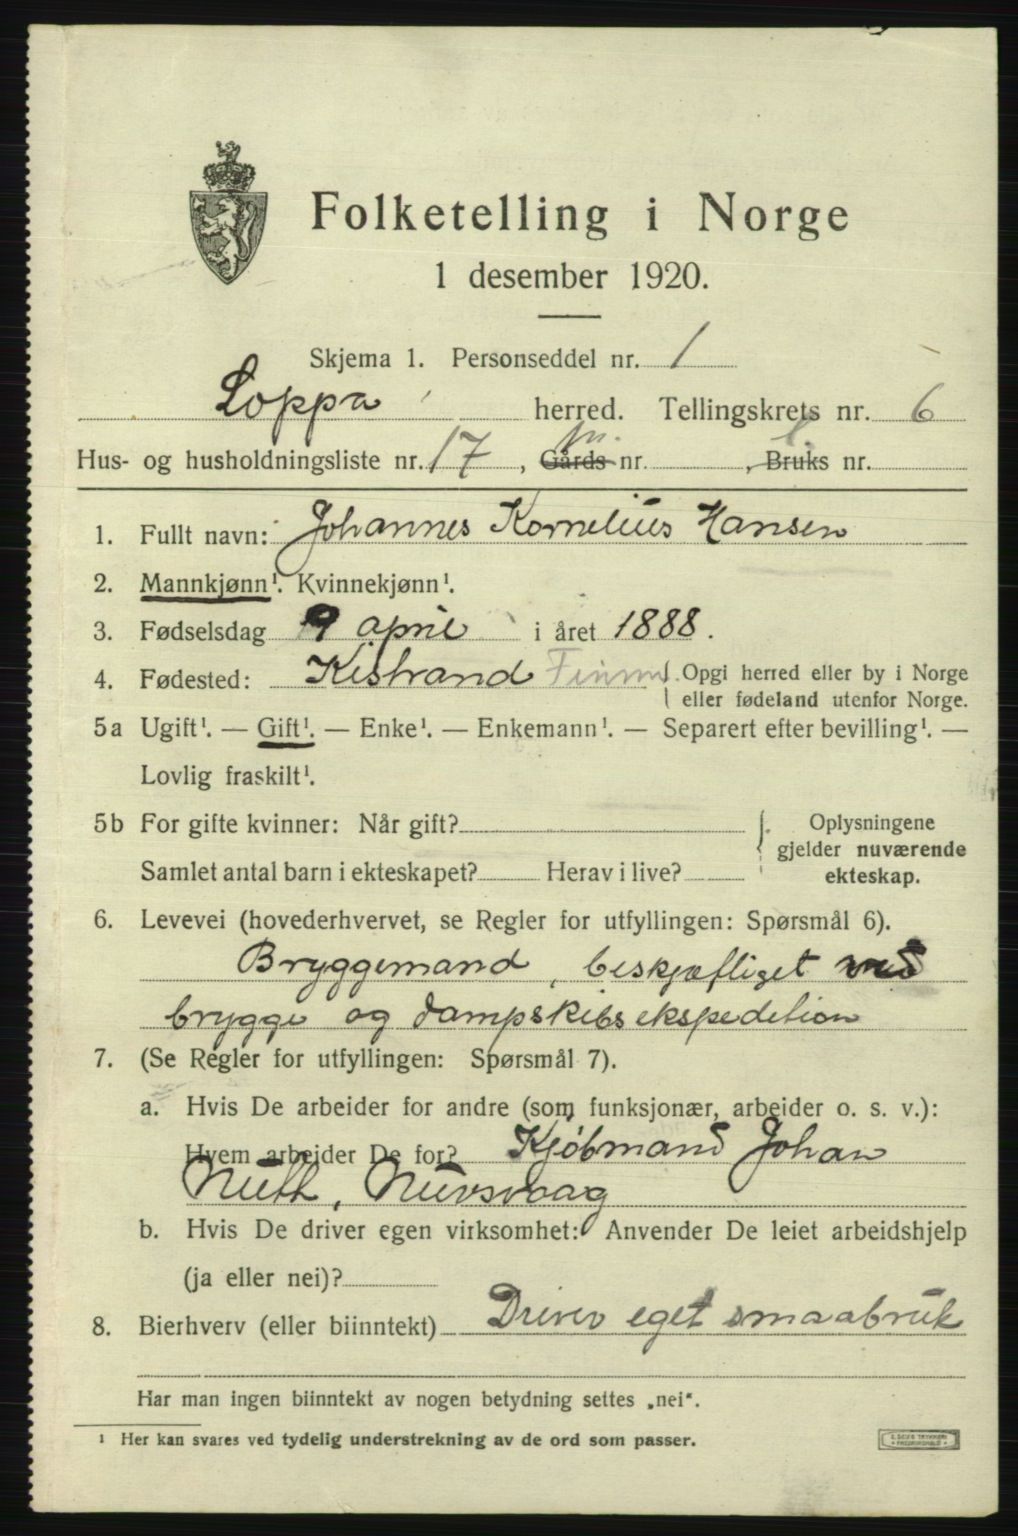 Folketelling i Norge
1 desember 1920.
Skjema 1. Personseddel nr. 1
Loppa herred. Tellingskrets nr. 6
Hus- og husholdningsliste nr. 17, Gårds nr. , Bruks nr.
1. Fullt navn: Johannes Kornelius Hansen
2. Mannkjønn¹. Kvinnekjønn¹.
3. Fødselsdag 9 april i året 1888.
4. Fødested: Kistrand Finnm Opgi herred eller by i Norge
eller fødeland utenfor Norge.
5a Ugift¹. — Gift¹. — Enke¹. — Enkemann¹. — Separert efter bevilling¹. —
Lovlig fraskilt¹.
5b For gifte kvinner: Når gift? Oplysningene
gjelder nuværende
Samlet antal barn i ekteskapet? Herav i live? ekteskap.
6. Levevei (hovederhvervet, se Regler for utfyllingen: Spørsmål 6).
Bryggemand, beskjæftiget ved
brygge og dampskibsekspedition
7. (Se Regler for utfyllingen: Spørsmål 7).
a. Hvis De arbeider for andre (som funksjonær, arbeider o. s. v.):
Hvem arbeider De for? Kjøbmand Johan
Nuth, Nuvsvaag
b. Hvis De driver egen virksomhet: Anvender De leiet arbeidshjelp
(ja eller nei)?
8. Bierhverv (eller biinntekt) Driver eget smaabruk
Har man ingen biinntekt av nogen betydning settes „nei".
¹ Her kan svares ved tydelig understrekning av de ord som passer.